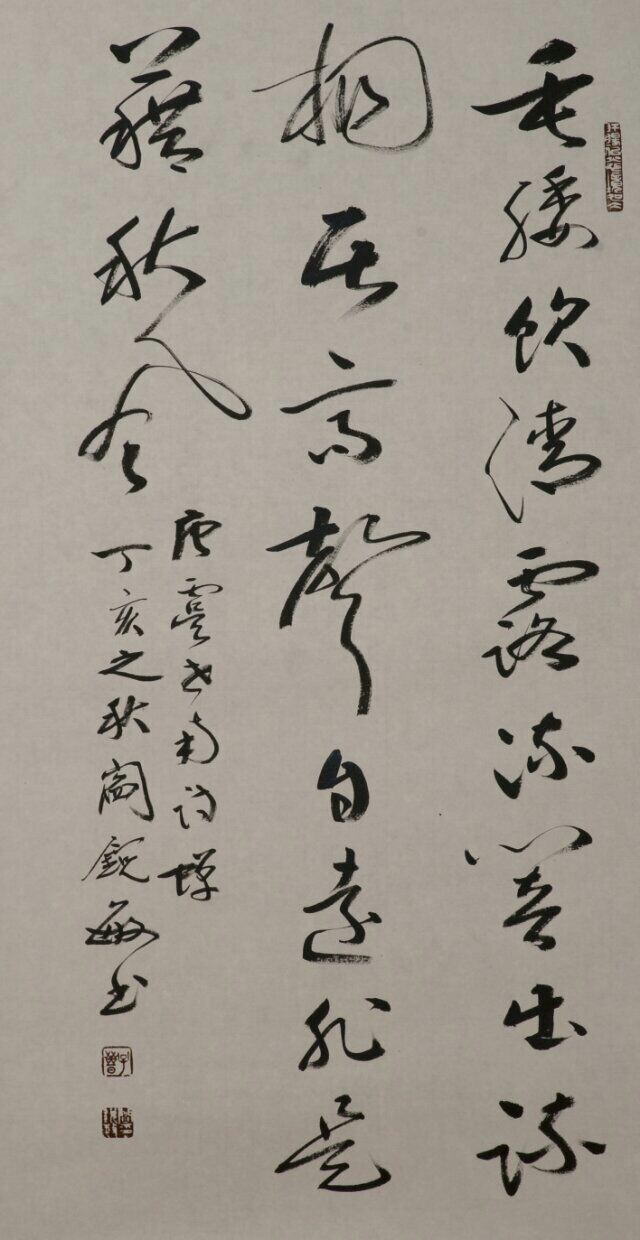 垂緌飲清露流響出疏
桐居高聲自遠非是
藉秋風
唐虞世南詩蟬
丁亥之秋閻銳敏书